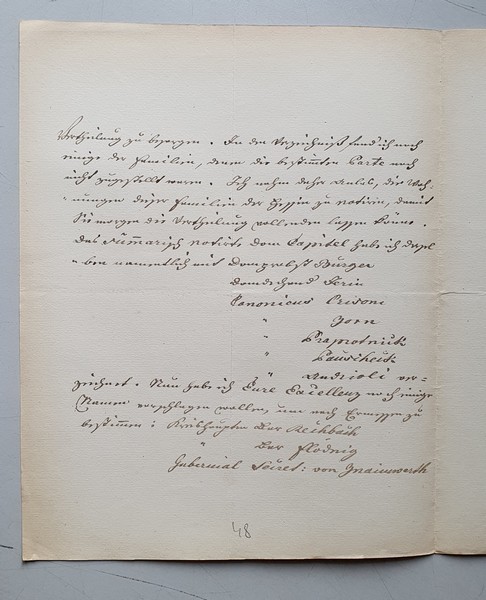 Vertheilung zu besorgen. In den Verzeichniß fand ich noch
einige der Familien, denen die bestimmten Parte noch
nicht zugestellt waren. Ich nahm daher Anlaß, die Woh-
nungen dieser Familien der zu notiren, damit
Sie morgen die Vertheilung vollenden lassen könne.
Das summarisch notirte dem Capitel habe ich
ben namentlich mit Domprobst Burger
Domdechand
Canonicus Orisoni
" Jorn
" Prapotnick
" Pauscheck
" ver=
zeichnet. Nun habe ich Eure Excellenz noch einige
Namen vorschlagen wollen, um nach Ermessen zu
bestimmen: Kreishauptm Bar Rechbach
" Bar Flödnig
Gubernial Secret: von
48